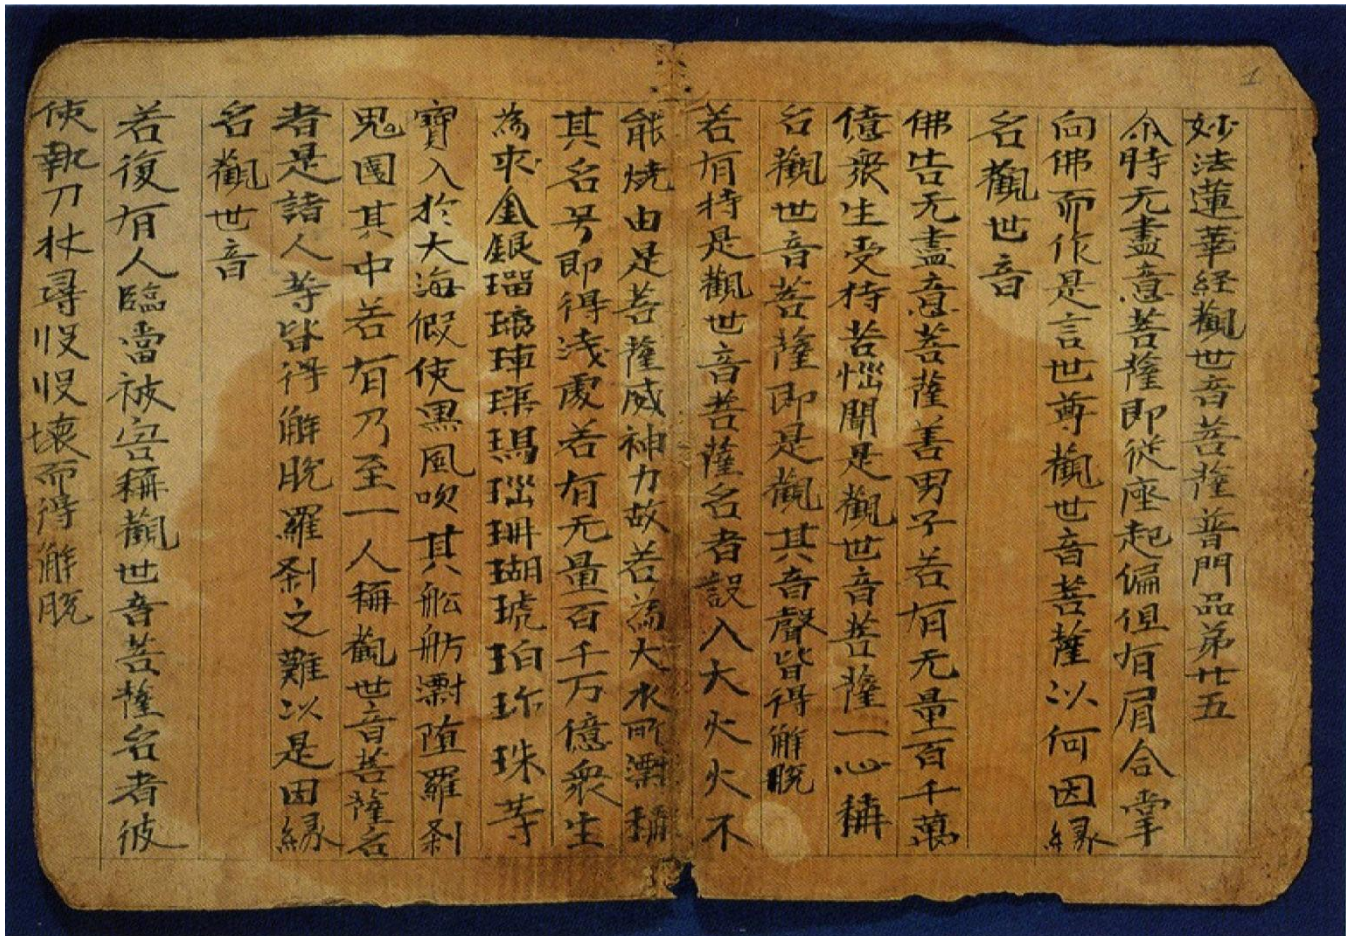 1
妙法蓮華経觀世音菩薩普門品弟廿五
尒時无盡意菩薩即從座起偏袒右肩合掌
向佛而作是言世尊觀世音菩薩以何因緣
名觀世音
佛告无盡意菩薩善男子若有无量百千萬
億衆生受持苦惱聞是觀世音菩薩一心稱
名觀世音菩薩即是觀其音聲皆得解脱
若有持是觀世音菩薩名者設入大火火不
能燒由是菩薩威神力故若為大水所漂稱
其名号即得淺處若有无量百千万億衆生
為求金銀瑠璃車璖瑪瑙珊瑚琥珀珎珠等
寶入於大海假使黒風吹其舩舫漂堕羅刹
鬼國其中若有乃至一人稱觀世音菩薩名
者是諸人等皆得解脱羅刹之難以是因緣
名觀世音
若復有人臨當被害稱觀世音菩薩名者彼
使執刀杖尋段段壞而得解脱